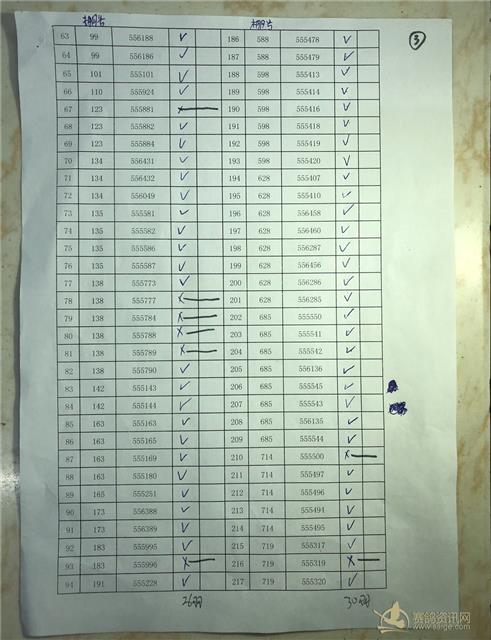 相片 相片
③
63 99 556188 ✓ 186 588 555478 ✓
64 99 556186 ✓ 187 588 555479 ✓
65 101 555101 ✓ 188 598 555413 ✓
66 110 555924 ✓ 189 598 555414 ✓
67 123 555881 × 190 598 555416 ✓
68 123 555882 ✓ 191 598 555418 ✓
69 123 555884 ✓ 192 598 555419 ✓
70 134 556431 ✓ 193 598 555420 ✓
71 134 556432 ✓ 194 628 555407 ✓
72 134 556049 ✓ 195 628 555410 ✓
73 135 555581 ✓ 196 628 556458 ✓
74 135 555582 ✓ 197 628 556460 ✓
75 135 555586 ✓ 198 628 556287 ✓
76 135 555587 ✓ 199 628 556456 ✓
77 138 555773 ✓ 200 628 556286 ✓
78 138 555777 × 201 628 556285 ✓
79 138 555784 × 202 685 555550 ✓
80 138 555788 × 203 685 555541 ✓
81 138 555789 × 204 685 555542 ✓
82 138 555790 ✓ 205 685 556136 ✓
83 142 555143 ✓ 206 685 555545 ✓
84 142 555144 ✓ 207 685 555543 ✓
85 163 555163 ✓ 208 685 556135 ✓
86 163 555165 ✓ 209 685 555544 ✓
87 163 555169 ✓ 210 714 555500 ×
88 163 555180 ✓ 211 714 555497 ✓
89 165 555251 ✓ 212 714 555496 ✓
90 173 556388 ✓ 213 714 555494 ✓
91 173 556389 ✓ 214 714 555495 ✓
92 183 555995 ✓ 215 719 555317 ✓
93 183 555996 × 216 719 555319 ×
94 191 555228 ✓ 217 719 555320 ✓
26羽 30羽
赛鸽资讯网
www.saige.com